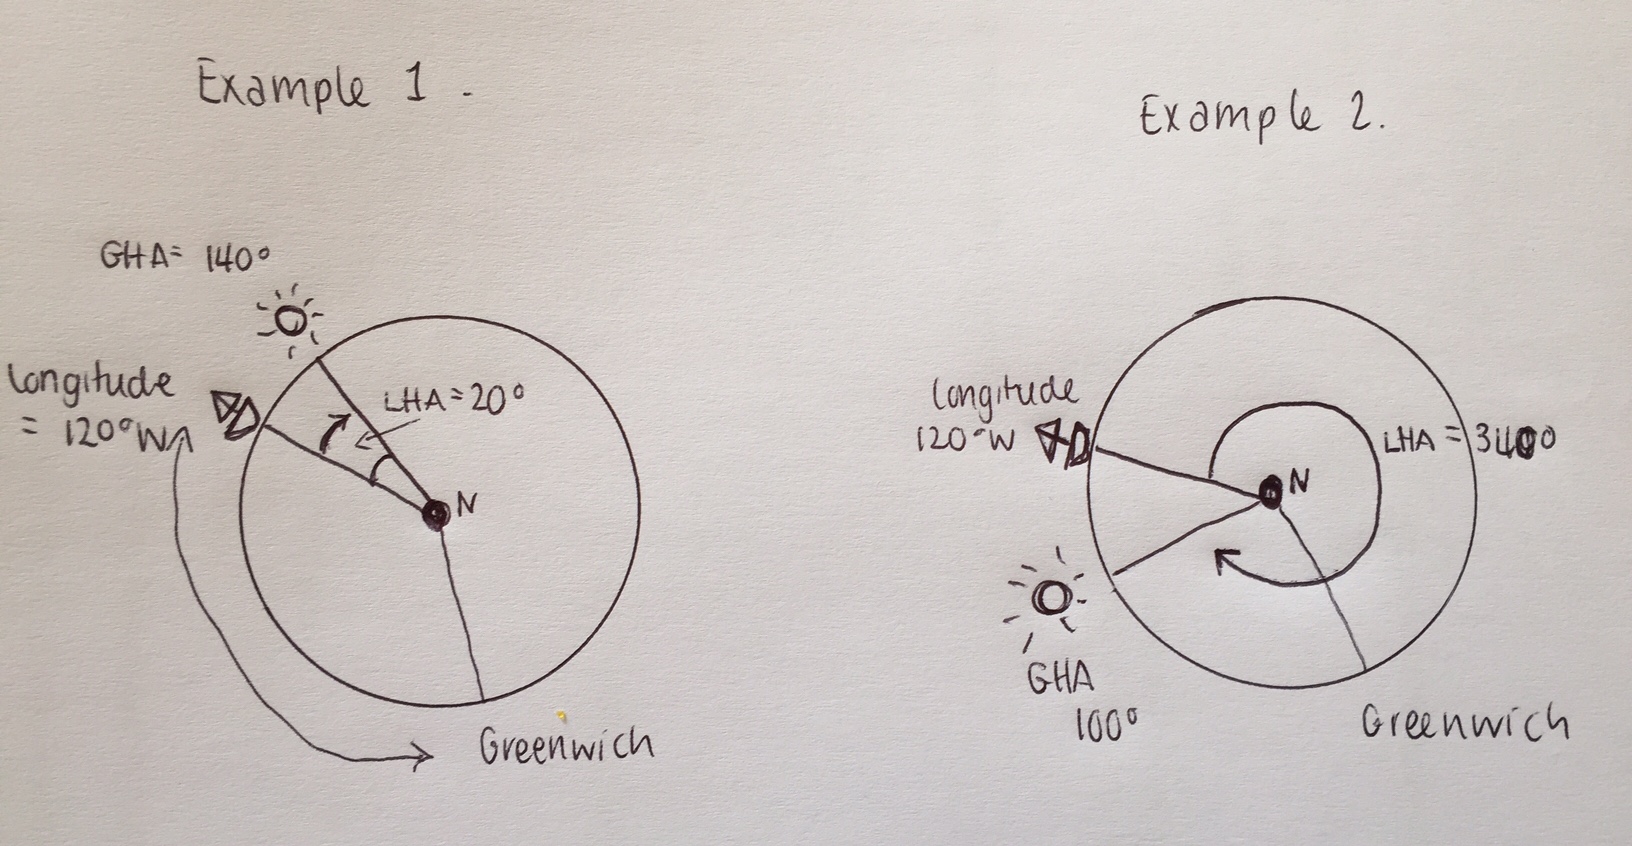 Example 1.
GHA= 140°
Longitude
= 120°W
LHA=20°
N
Greenwich
Example 2.
Longitude
120°W
LHA = 340°
N
GHA
100°
Greenwich